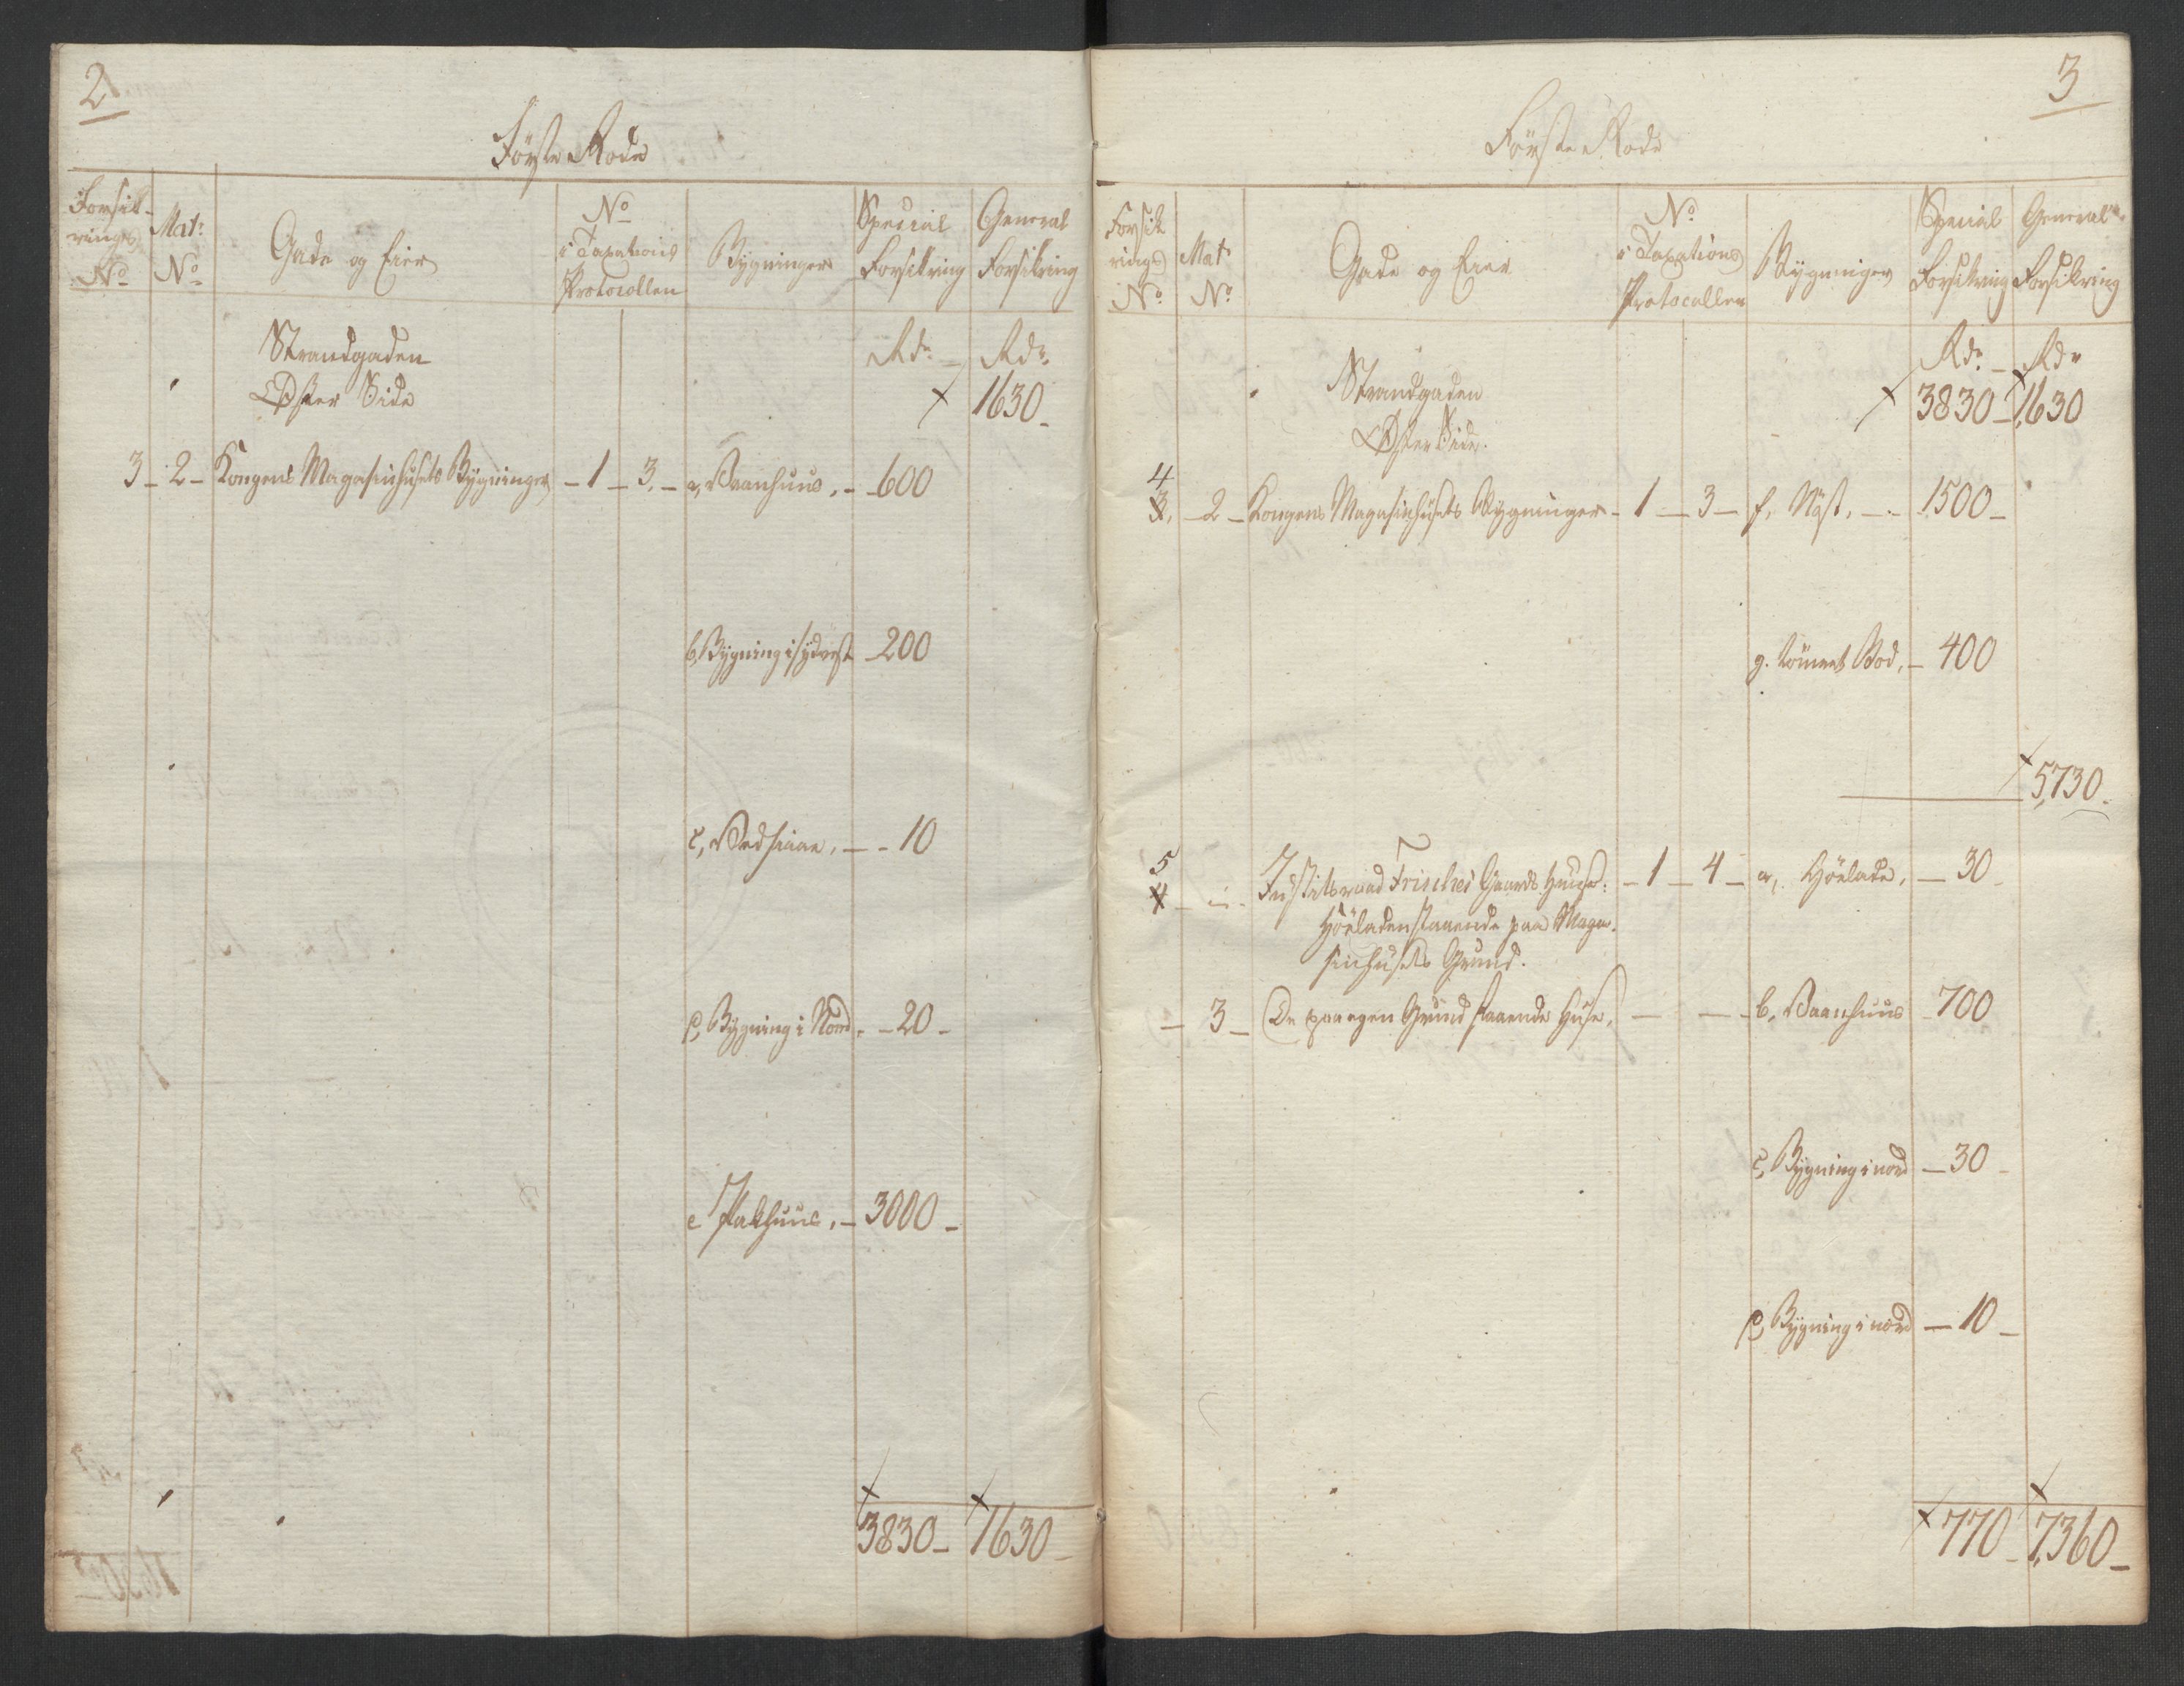 2
Första Rode
Forsik-
rings
No
Mat:
No
Gade og Eier
No
i Taxations
Protocollen
Bygninger
Special
Forsikring
General
Forsikring
Strandgaden
Øster Side
Rdr
Rdr
1630
3 2 Kongens Magasinhusets Bygninger 1 3 a, Vaanhuus, 600
b, Bygning i sydvest 200
c, 10
d, Bygning i Nord 20
e Pakhuus, 3000
3830 1630
3
Første Rode
Forsik
rings
No
Mat
No
Gade og Eier
No
i Taxations
Protocollen
Bygninger
Special
Forsikring
General
Forsikring
Strandgaden
Øster Side.
Rdr Rdr
3830 1630
4
3, 2 Kongens Magasinhusets Bygninger 1 3 f, Nøst, 1500
g. tömret Bod, 400
5730
5
4 Justitsraad Frisches Gaards Huuse: 1 4 a, Höelade, 30
Höeladen staaende paa Maga-
sinhusets Grund.
3 De paa egen Grund staaende Huse, b, Vaanhuus 700
c, Bygning i nord 30
d, Bygning i nord 10
770 7360